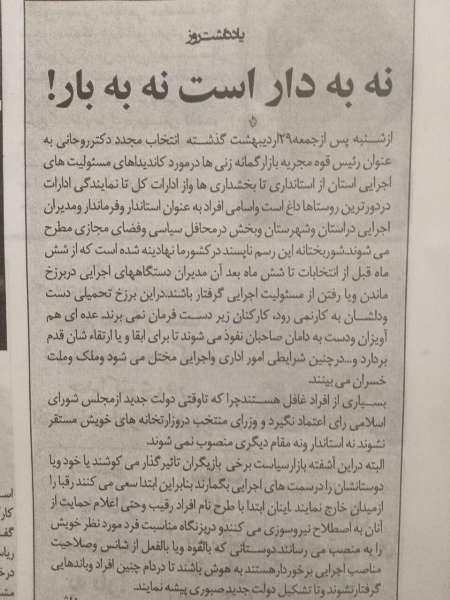 یادداشت‌روز
نه به دار است نه به بار!
ازشنبه پس ازجمعه۲۹اردیبهشت گذشته انتخاب مجدد دکترروحانی به
عنوان رئیس قوه مجریه بازارگمانه زنی ها درمورد کاندیداهای مسئولیت های
اجرایی استان از استانداری تا بخشداری ها واز ادارات کل تا نمایندگی ادارات
دردورترین روستاها داغ است واسامی افراد به عنوان استاندار وفرماندار ومدیران
اجرایی دراستان وشهرستان وبخش درمحافل سیاسی وفضای مجازی مطرح
می شوند.شوربختانه این رسم ناپسند درکشورما نهادینه شده است که از شش
ماه قبل از انتخابات تا شش ماه بعد آن مدیران دستگاههای اجرایی دربرزخ
ماندن ویا رفتن از مسئولیت اجرایی گرفتار باشند.دراین برزخ تحمیلی دست
ودلشان به کارنمی رود، کارکنان زیر دست فرمان نمی برند. عده ای هم
آویزان ودست به دامان صاحبان نفوذ می شوند تا برای ابقا و یا ارتقاء شان قدم
بردارد و...درچنین شرایطی امور اداری واجرایی مختل می شود وملک وملت
خسران می بینند.
بسیاری از افراد غافل هستندچرا که تاوقتی دولت جدید ازمجلس شورای
اسلامی رای اعتماد نگیرد و وزرای منتخب دروزارتخانه های خویش مستقر
نشوند نه استاندار ونه مقام دیگری منصوب نمی شوند.
البته دراین آشفته بازارسیاست برخی بازیگران تاثیرگذار می کوشند یا خود ویا
دوستانشان را درسمت های اجرایی بگمارند بنابراین ابتدا سعی می کنند رقبا را
ازمیدان خارج نمایند .اینان ابتدا با طرح نام افراد رقیب وحتی اعلام حمایت از
آنان به اصطلاح نیروسوزی می کنندو دربزنگاه مناسبت فرد مورد نظر خویش
را به منصب می رسانند.دوستانی که بالقوه ویا بالفعل از شانس وصلاحیت
مناصب اجرایی برخوردارهستند به هوش باشند تا دردام چنین افراد وباندهایی
گرفتارنشوند وتا تشکیل دولت جدید صبوری پیشه نمایند.